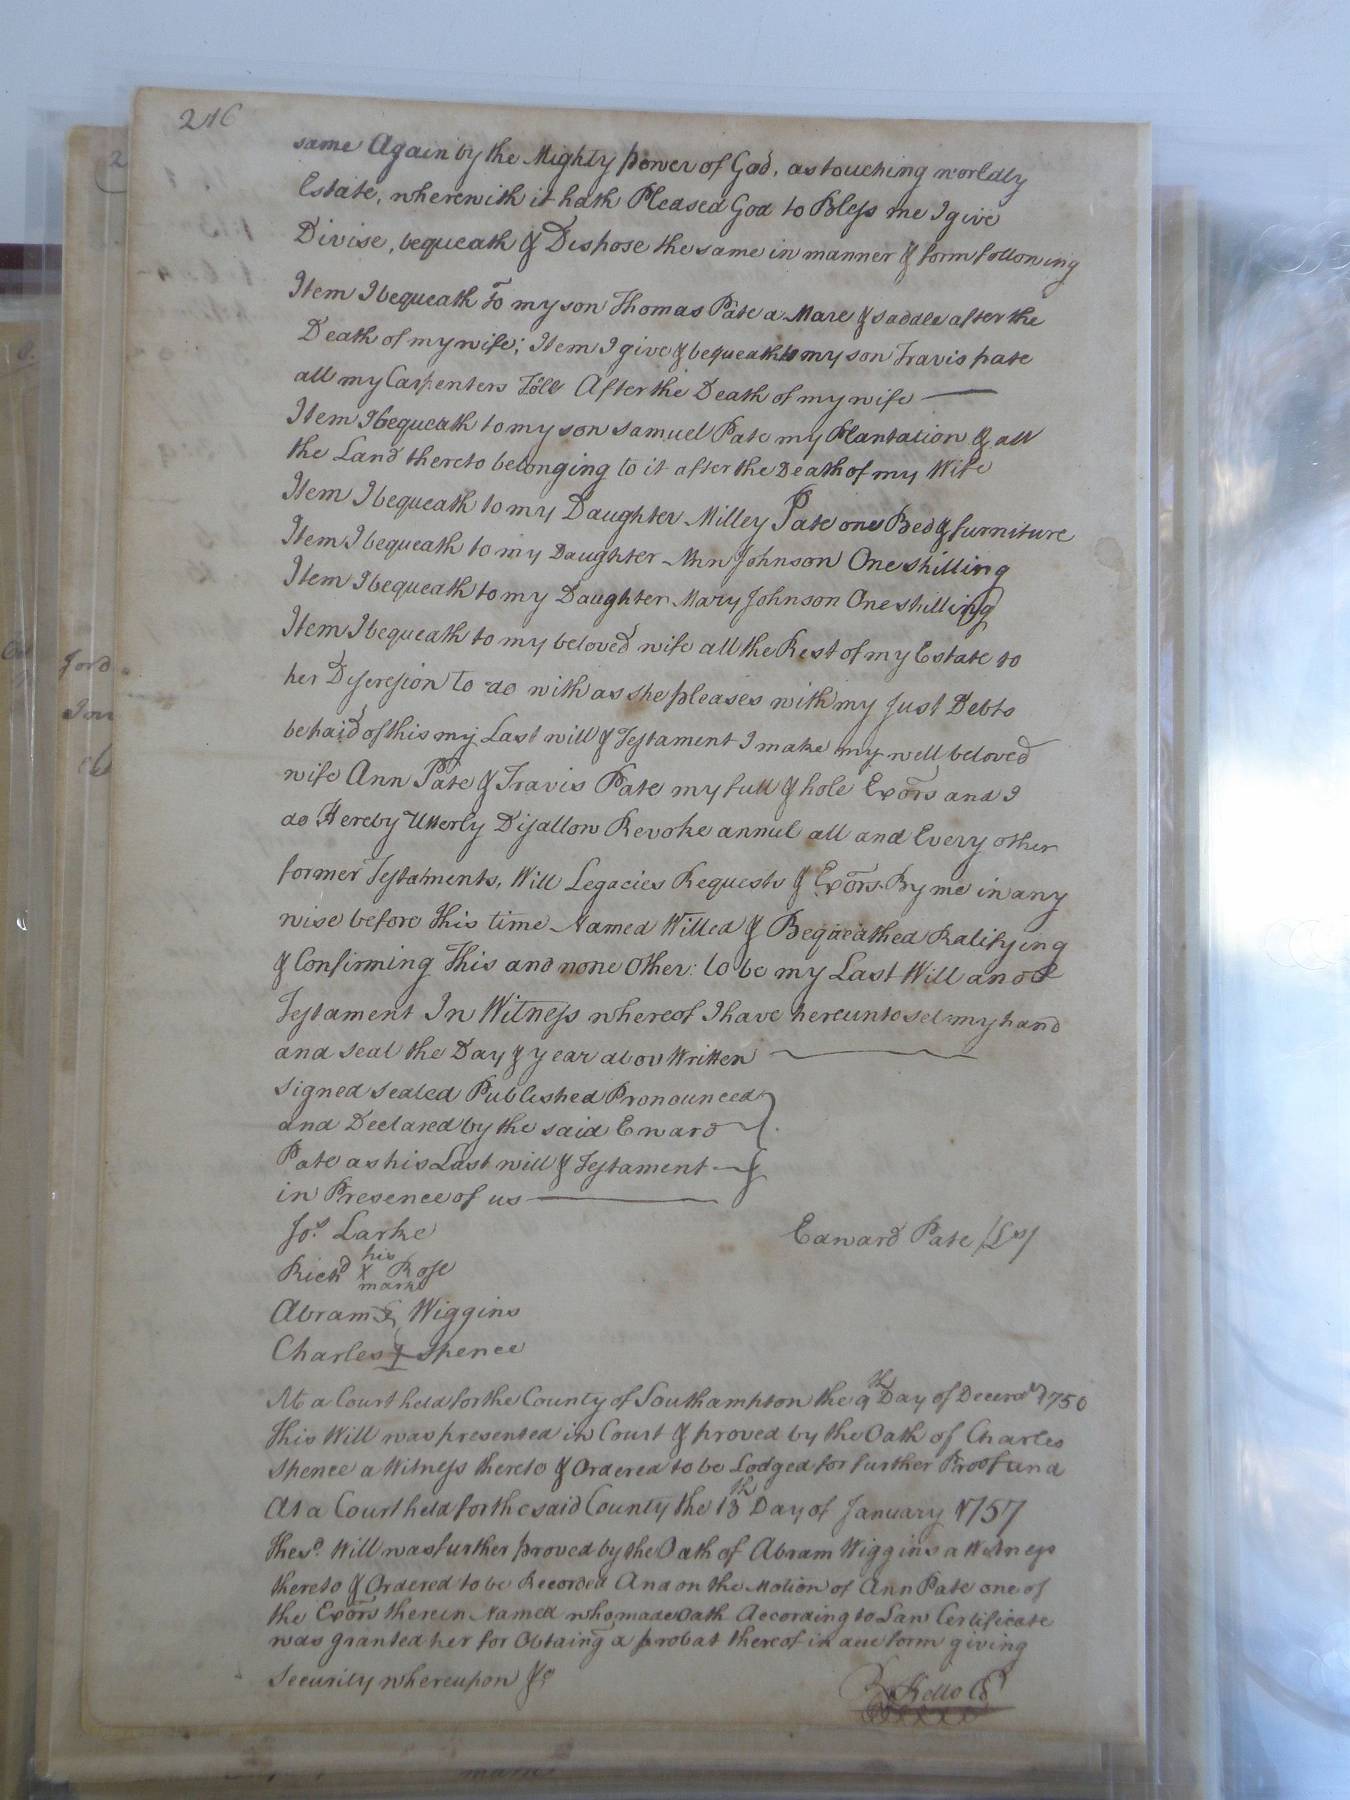 216
same Again by the Mighty power of God, as touching worldly
Estate, wherewith it hath Pleased God to Bless me I give
Divise, bequeath & Dispose the same in manner & form following
Item I bequeath To my son Thomas Pate a Mare & saddle after the
Death of my wife; Item I give & bequeath to my son Travis pate
all my Carpenters Tolls After the Death of my wife —
Item I bequeath to my son Samuel Pate my Plantation & all
the Land thereto belonging to it after the Death of my Wife
Item I bequeath to my Daughter Milley Pate one Bed & furniture
Item I bequeath to my Daughter Ann Johnson One shilling
Item I bequeath to my Daughter Mary Johnson One shilling
Item I bequeath to my beloved wife all the Rest of my Estate to
her Discresion to do with as she pleases with my Just Debts
be paid of this my Last will & Testament I make my well beloved
wife Ann Pate & Travis Pate my full & hole Exors and I
do Hereby Utterly Disallow Revoke annul all and Every other
former Testaments, Will Legacies Requests & Exors By me in any
wise before this time Named Willed & Beqeathed Ratifying
& Confirming This and none Other: to be my Last Will and
Testament In Witness whereof I have hereunto set my hand
and seal the Day & year abov Written —
signed sealed Published Pronounced
and Declared by the said Edward
Pate as his Last will & Testament —
in Presence of us —
Jos. Larke
Edward Pate (Ls)
his
Richd X Rose
mark
Abram Wiggins
Charles Spence
At a Court held for the County of Southampton the 9th Day of Decemr 1756
This Will was presented in Court & proved by the Oath of Charles
Spence a Witness thereto & Ordered to be Lodged for further Proof and
At a Court held for the said County the 13th Day of January 1757
The sd. Will was further proved by the Oath of Abram Wiggins a Witness
thereto & Ordered to be Recorded And on the Motion of Ann Pate one of
the Exors therein Named who made Oath According to Law Certificate
was granted her for Obtaing a probat thereof in due form giving
Security whereupon &c
Kello